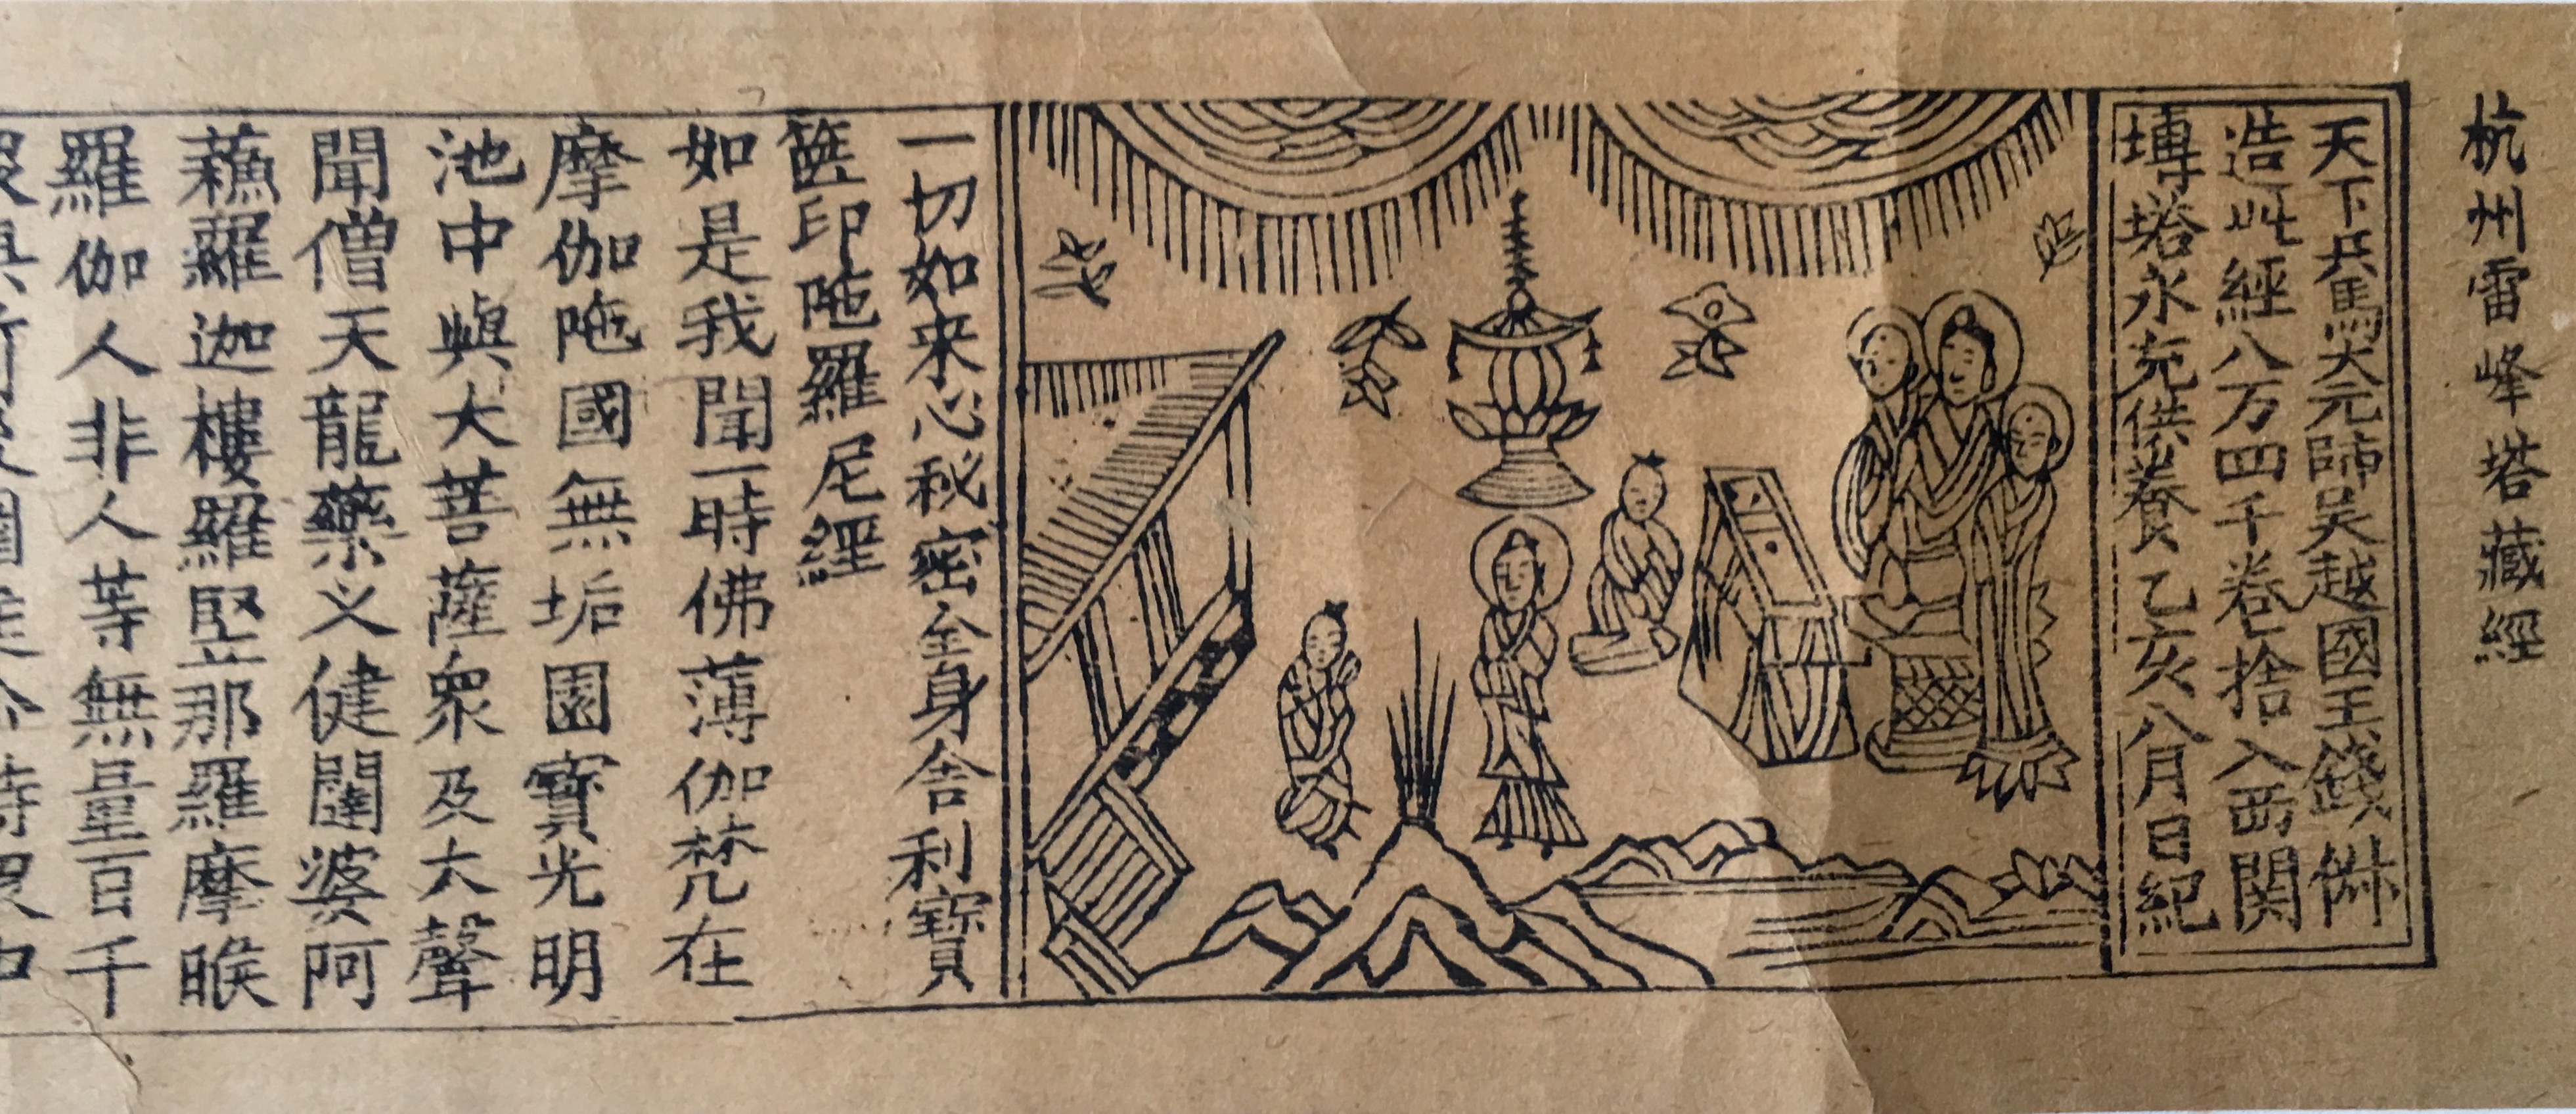 杭州雷峰塔藏經
天下兵馬大元帥吳越國王錢俶
造此經八万四千卷捨入西関
塼塔永充供養乙亥八月日紀
一切如来心秘密全身舍利寶
篋印陁羅尼經
如是我聞一時佛薄伽梵在
摩伽陁國無垢園寶光明
池中與大菩薩衆及大聲
聞僧天龍藥义健闥婆阿
蘓羅迦樓羅堅那羅摩睺
羅伽人非人等無量百千